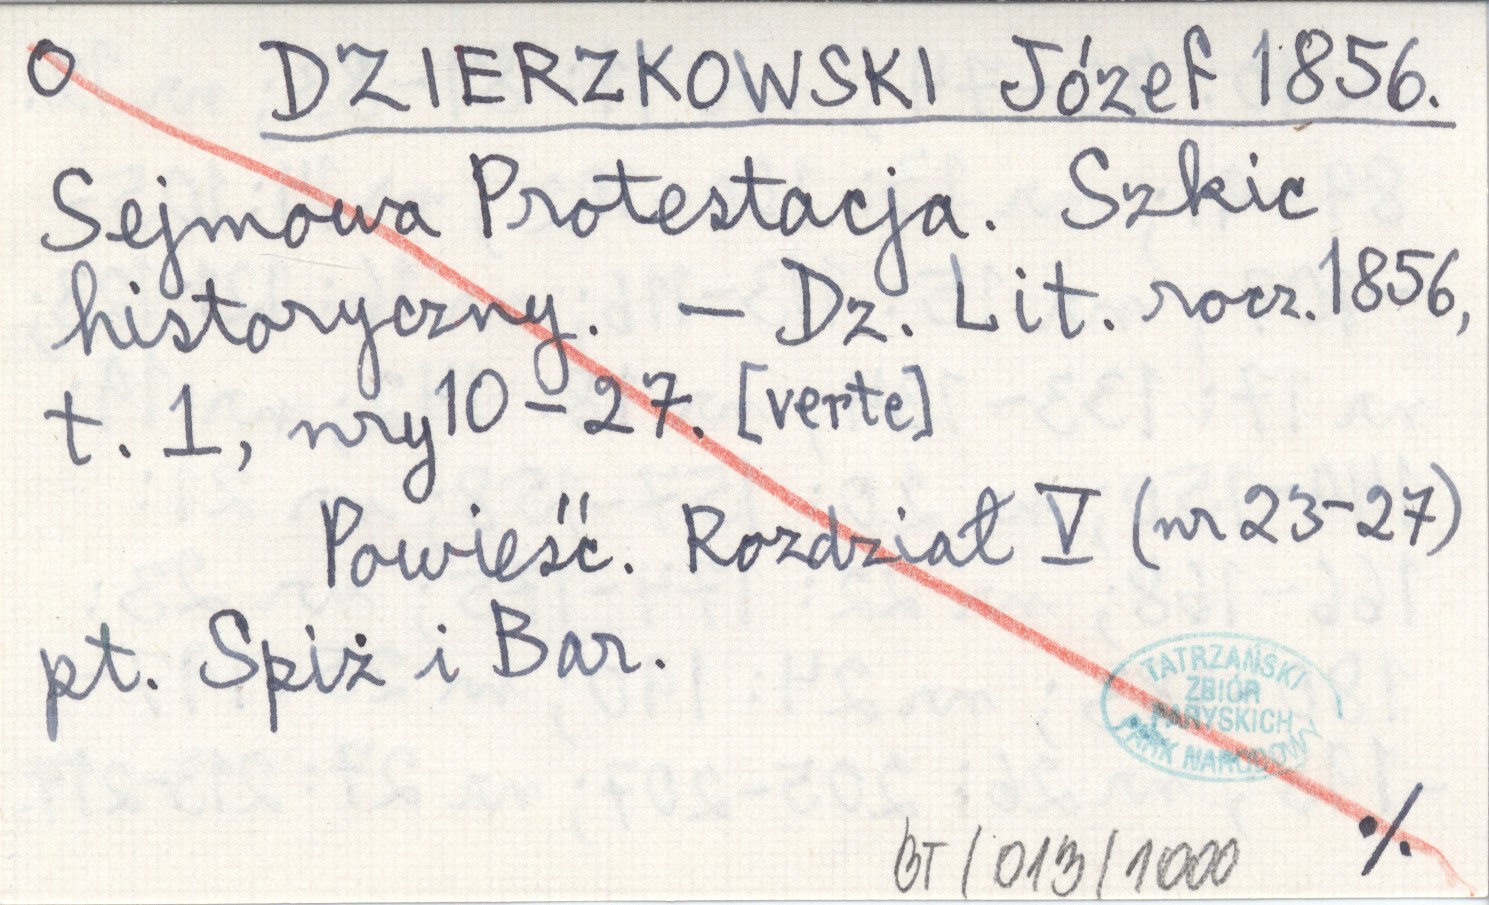 O DZIERZKOWSKI Józef 1856.
Sejmowa Protestacja. Szkic
historyczny. – Dz. Lit. rocz. 1856,
t. 1, nry 10–27. [verte]
Powieść. Rozdział V (nr 23–27)
pt. Spiż i Bar.
TATRZAŃSKI
ZBIÓR
PARYSKICH
PARK NARODOWY
./.
BT/013/1000